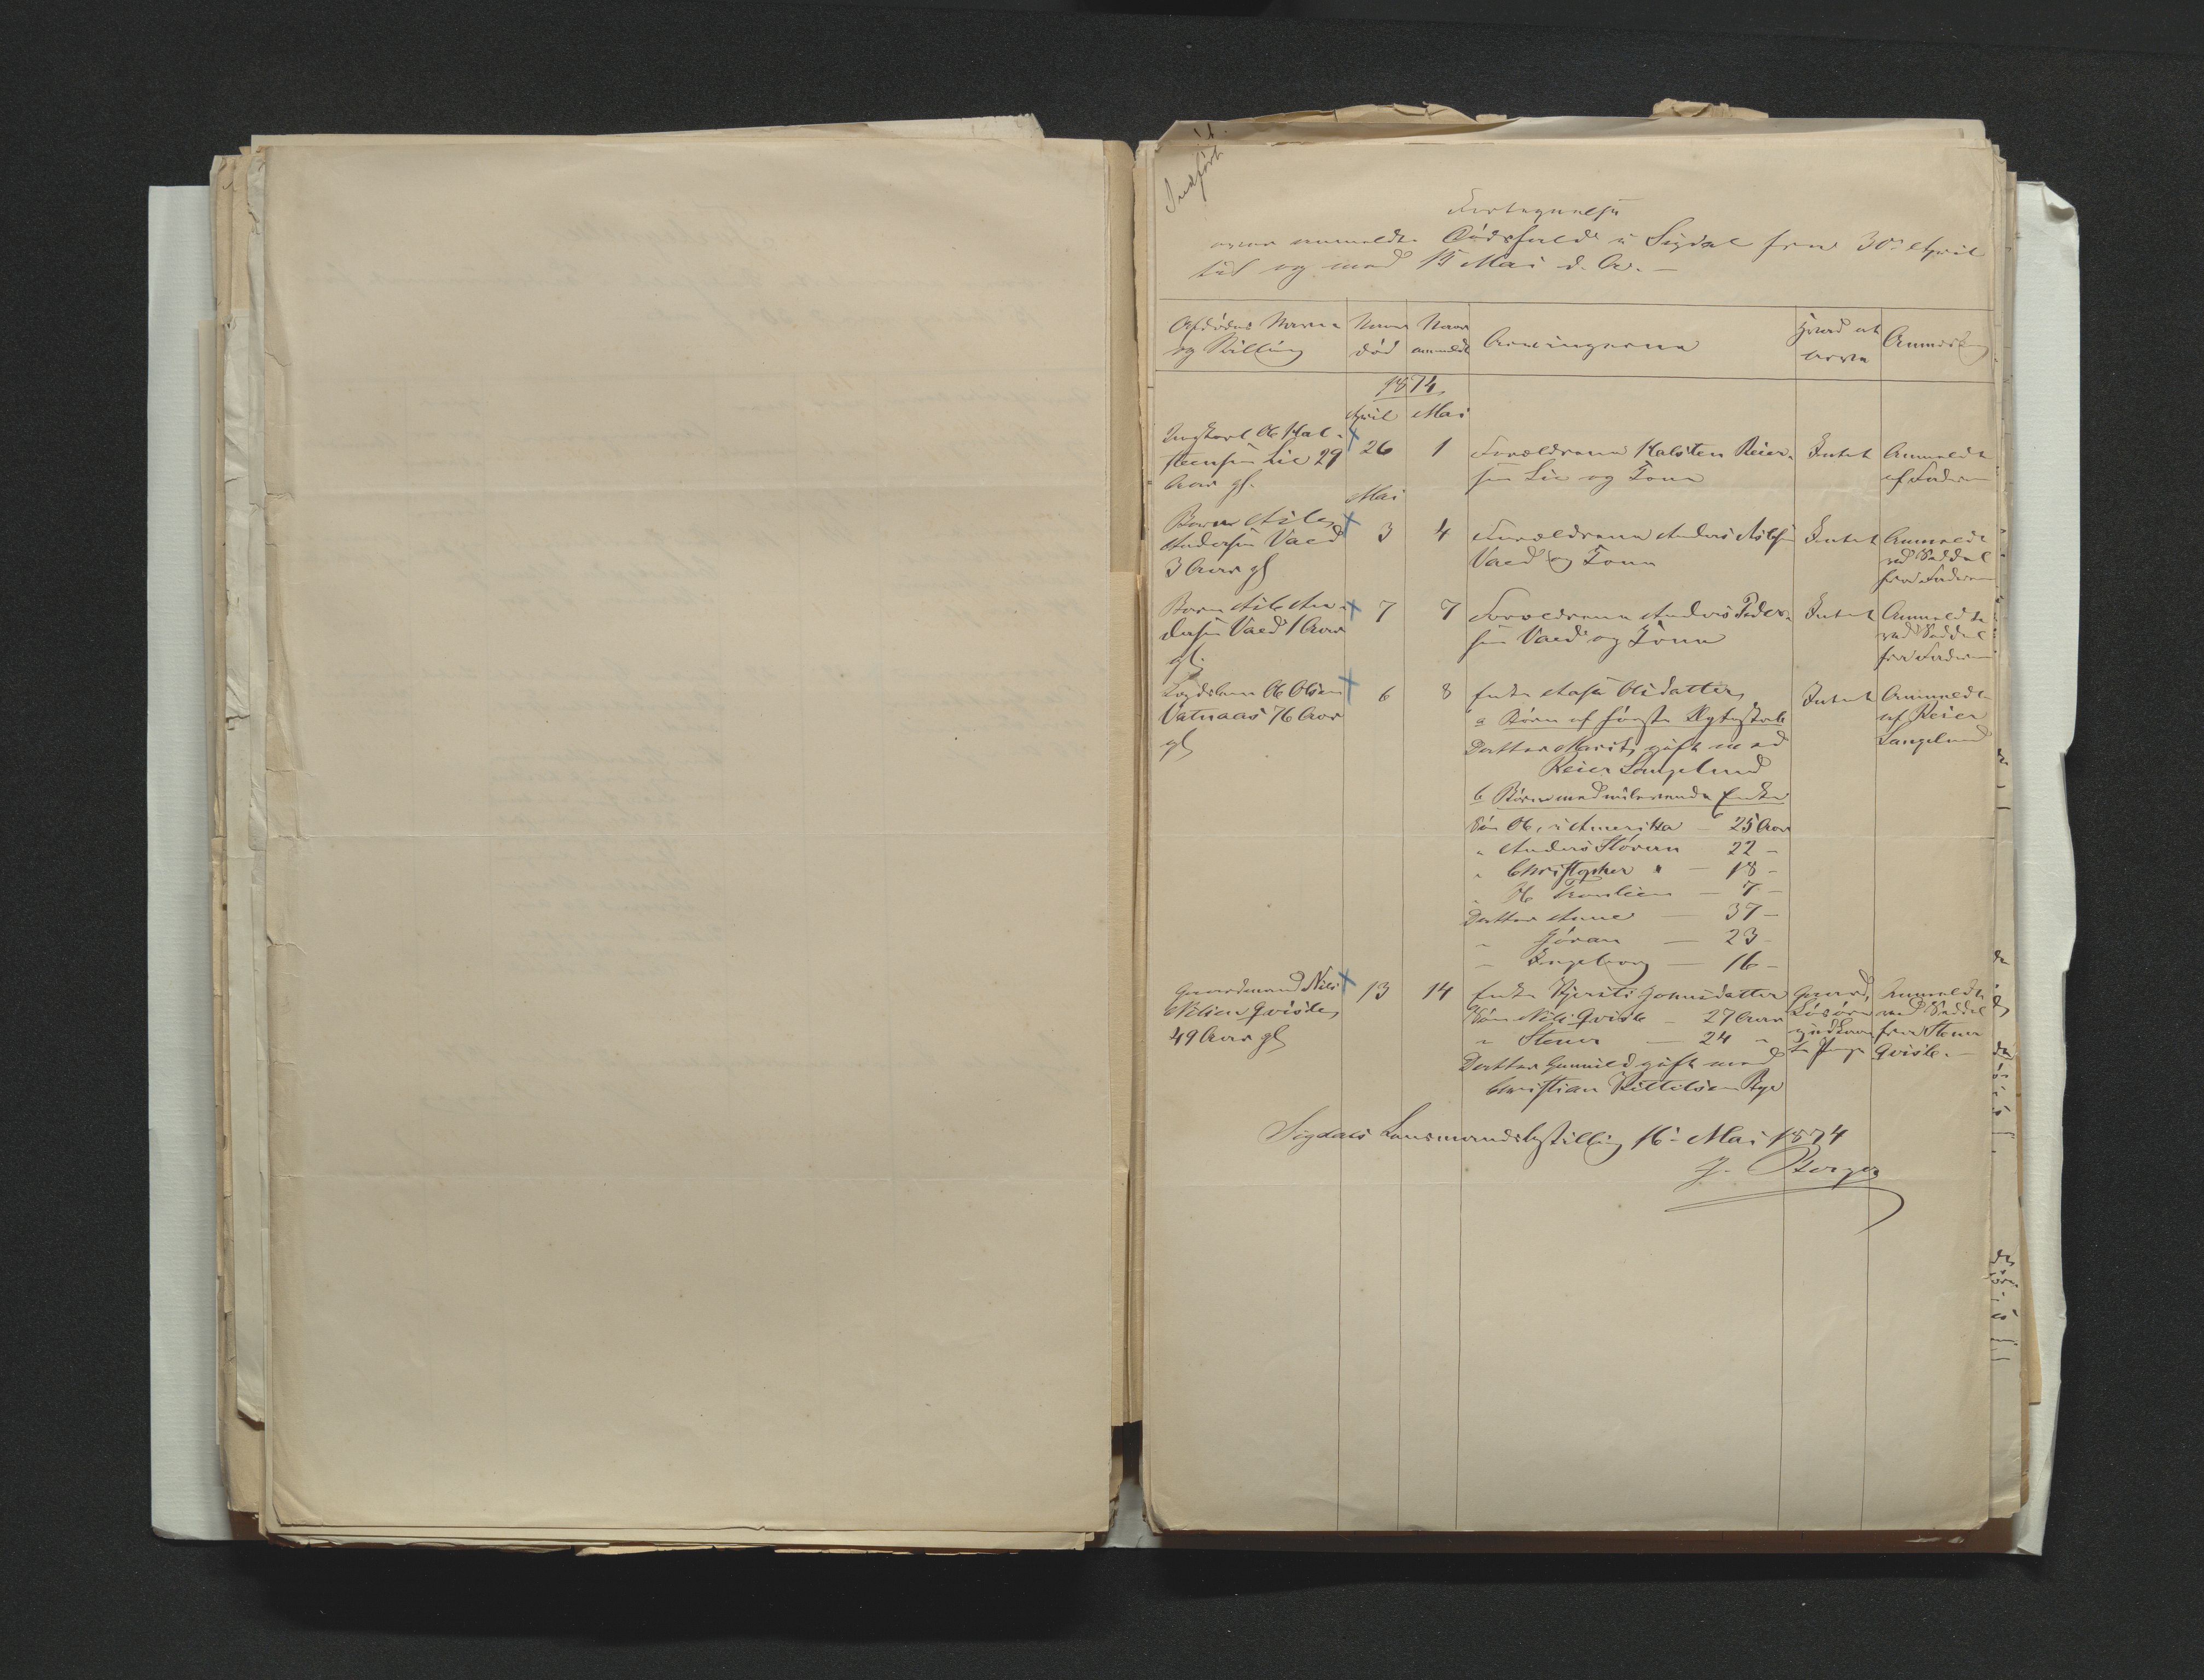 Indført.
Fortegnelse
over anmeldte Dødsfald i Sigdal fra 30te April
til og med 15 Mai d. A. –
Afdødes Navn og Stilling
Naar død
Naar anmeldt
Arvingerne
Hvad at arve
Anmærkn
1874
April Mai
Ungkarl Ole Hal-
steensen Lie 29
Aar gl.
26
1
Forældrene Halsten Reier-
sen Lie og Kone
Intet
Anmeldt
af Faderen
Mai
Barn Asle
Andersen Vaed
3 Aar gl
3
4
Forældrene Anders Aslesen
Vaed og Kone
Intet
Anmeldt
ved Seddel
fra Faderen
Barn Asle An-
dersen Vaed 1 Aar
gl.
7
7
Forældrene Anders Peder-
sen Vaed og Kone
Intet
Anmeldt
ved Seddel
fra Faderen
Ole Olsen
Vatnaas 76 Aar
gl
6
8
Enke Aase Olsdatter
a Børn af første Ægteskab
Datter Marit, gift med
Reier Langelund
b Børn med nulevende Enke
Søn Ole, i Amerika – 25 Aar
" Anders 22 –
" Christopher " – 18 –
" Ole – 7 –
Datter Anne – 37 –
" Jøran – 23 –
– Ingeborg – 16 –
Intet
Anmeldt
af Reier
Langelund
Gaardmand Nils
Nilsen Qvisle
49 Aar gl
13
14
Enke Kjersti Johnsdatter
Søn Nils Qvisle – 27 Aar
" Stener – 24 "
Datter Gunnild gift med
Christian Kittilsen Rye
Gaard,
Løsøre
Anmeldt
ved Seddel
fra Stener
Qvisle. –
Sigdals Lensmandsbestilling 16de Mai 1874
J. Borger